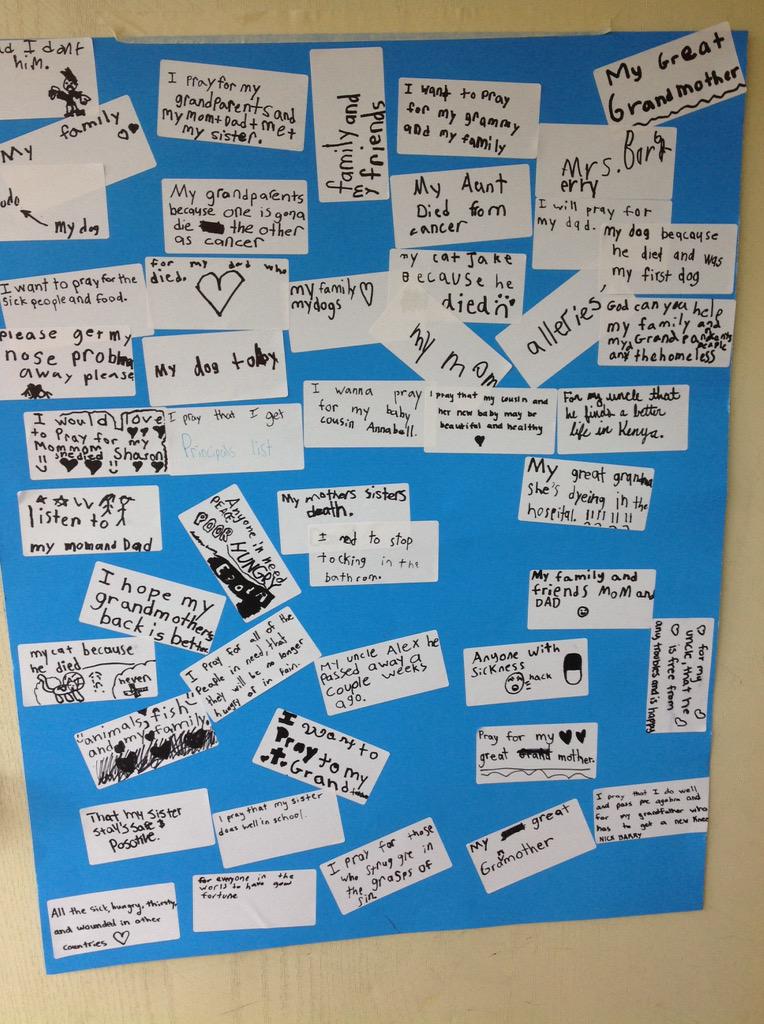 d I dont
him.
My family
my dog
I pray for my
grandparents and
my mom+Dad+me+
my sister.
family and
my friends
I want to pray
for my grammy
and my family
My Great
Grandmother
My grandparents
because one is gona
die the other
as cancer
My Aunt
Died from
cancer
Mrs.
erry
I will pray for
my dad.
my dog beqcause
he died and was
my first dog
I want to pray for the
sick people and food.
for my dad who
died.
my family
my dogs
my cat Jake
Because he
died
alleries
God can you help
my family and
my Grandparents
and people
the homeless
please get my
nose problem
away please
My dog toby
my mom
I would love
to Pray for my
Mommom
she died Sharon
I pray that I get
Principals list
I wanna pray
for my baby
cousin Annabell.
I pray that my cousin and
her new baby may be
beautiful and healthy
For my uncle that
he finds a better
life in Kenya.
listen to
my mom and Dad
Anyone in need
PEACE
POOR HUNGRY
My mothers sisters
death.
I ned to stop
tocking in the
bathroom.
My great grandma
she's dyeing in the
hospital. !!!!!!!
I hope my
grandmothers
back is better
My family and
friends MoM and
DAD
my cat because
he died
heven
I pray for all of the
People in need, that
they will be no longer
hungry or in Pain.
My uncle Alex he
passed away a
couple weeks
ago.
Anyone with
sickness
hack
for my
uncle, that he
is free from
any troubles and is happy
animals, fish
and my family.
I want to
Pray to my
Grand
Pray for my
great grand mother.
That my sister
stay's safe &
Posotive.
I pray that my sister
does well in school.
I pray for those
who struggle in
the grasps of
sin
My great
Gramother
I pray that I do well
and pass pre algebra and
for my grandfather who
has to get a new knee
NICK BARRY
All the sick, hungry, thirsty,
and wounded in other
countries
for everyone in the
world to have good
fortune